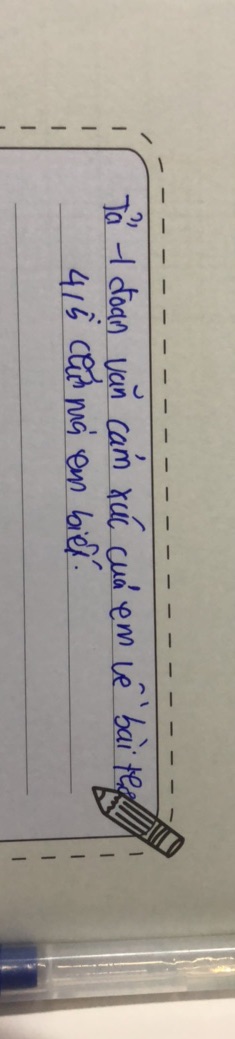 Tả 1 đoạn văn cảm xúc của em về bài thơ
4/5 chữ mà em biết.